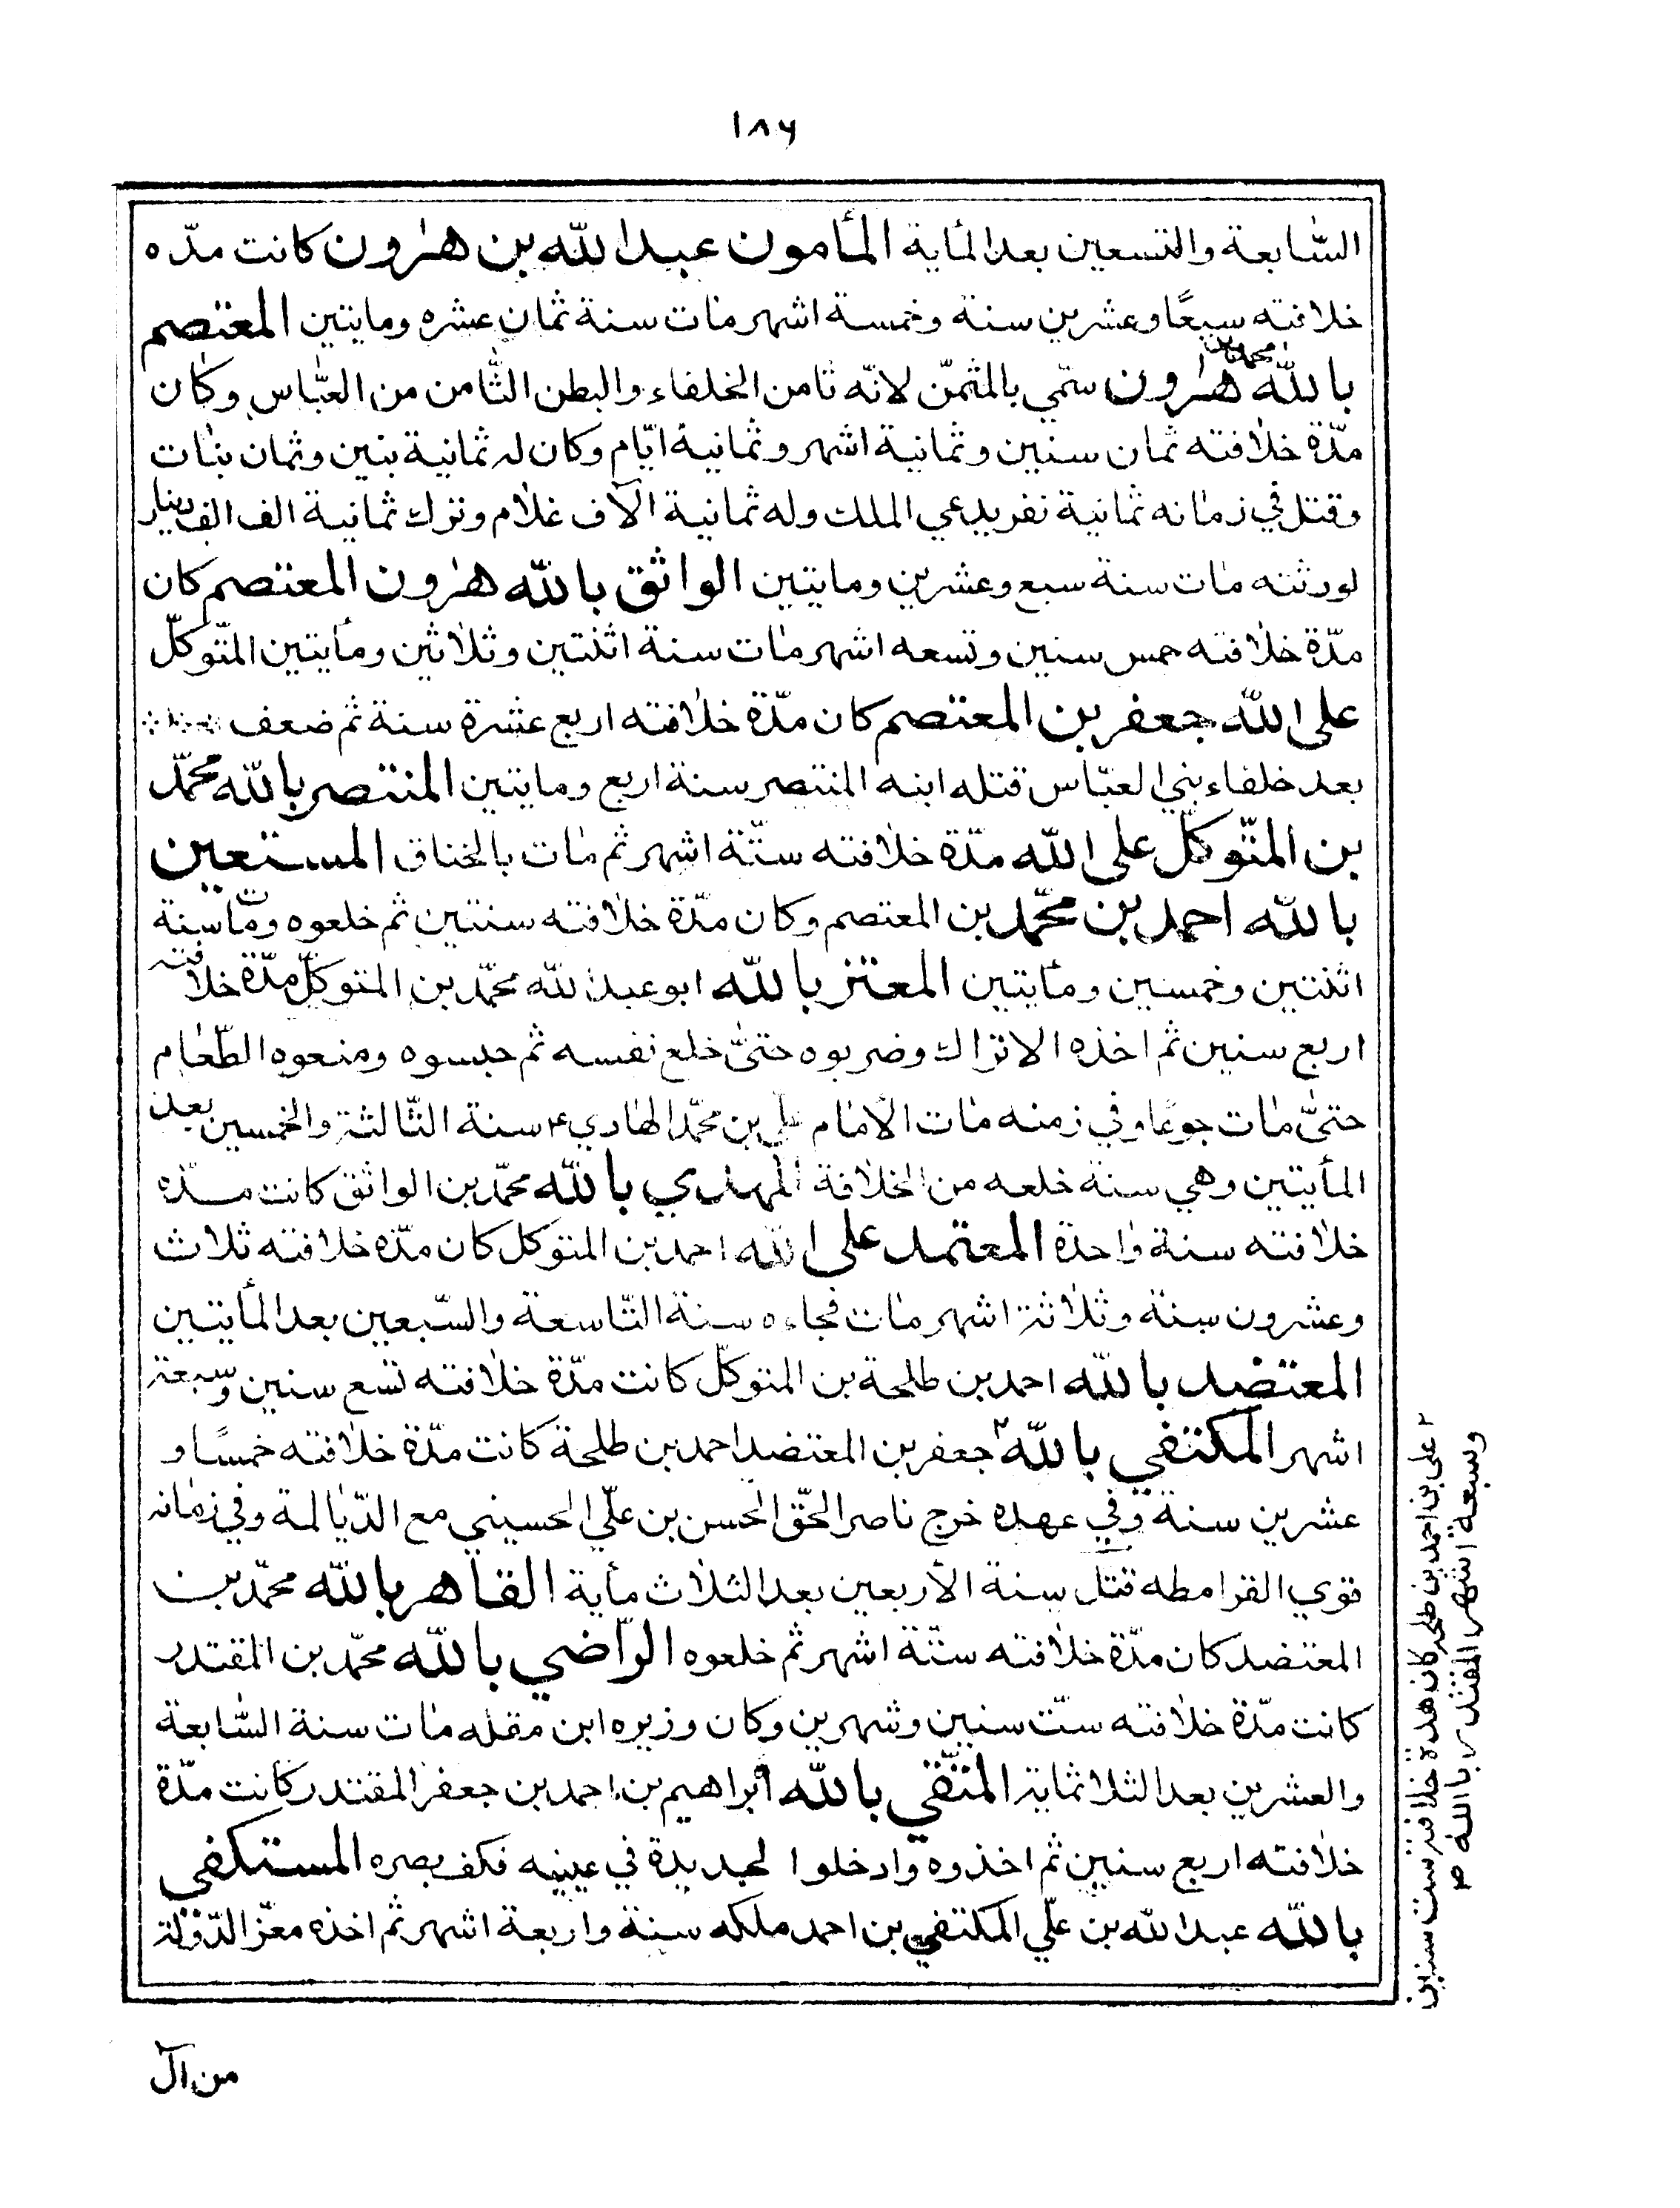 ١٨۶
السّابعة والتسعين بعد المأية المأمون عبد الله بن هٰرون كانت مدّه
خلافته سبعًا وعشرين سنة وخمسة اشهر مات سنة ثمان عشره ومايتين المعتصم
بالله محمد بن هٰرون سمّي بالمثمّن لانّه ثامن الخلفاء والبطن الثّامن من العبّاس وكان
مدّة خلافته ثمان سنين وثمانية اشهر وثمانية ايّام وكان له ثمانية بنين وثمان بنات
وقتل في زمانه ثمانية نفر يدعي الملك وله ثمانية آلاف غلام وترك ثمانية الف الف دينار
لورثته مات سنة سبع وعشرين ومايتين الواثق بالله هٰرون المعتصم كان
مدّة خلافته خمس سنين وتسعه اشهر مات سنة اثنتين وثلاثين ومأيتين المتّوكّل
على الله جعفر بن المعتصم كان مدّة خلافته اربع عشرة سنة ثم ضعف
بعد خلفاء بني العبّاس قتله ابنه المنتصر سنة اربع ومايتين المنتصر بالله محمّد
بن المتّوكّل على الله مدّة خلافته ستّة اشهر ثم مات بالخناق المستعين
بالله احمد بن محمّد بن المعتصم وكان مدّة خلافته سنتين ثم خلعوه ومات سنة
اثنتين وخمسين ومأيتين المعتز بالله ابو عبد الله محمّد بن المتوكّل مدّة خلافته
اربع سنين ثم اخذه الاتراك وضربوه حتىّ خلع نفسه ثم حبسوه ومنعوه الطّعام
حتىّ مات جوعًا وفي زمنه مات الأمام علي بن محمّد الهادي ع سنة الثّالثة والخمسين بعد
المأيتين وهي سنة خلعه من الخلافة المهتدي بالله محمّد بن الواثق كانت مدّه
خلافته سنة واحدة المعتمد على الله احمد بن المتوكل كان مدّه خلافته ثلاث
وعشرون سنة وثلاثة اشهر مات فجاءه سنة التّاسعة والسّبعين بعد المأيتين
المعتضد بالله احمد بن طلحة بن المتوكّل كانت مدّة خلافته تسع سنين وسبعة
اشهر المكتفي بالله ٢ جعفر بن المعتضد احمد بن طلحة كانت مدّة خلافته خمسًا و
عشرين سنة وفي عهده خرج ناصر الحقّ الحسن بن عليّ الحسيني مع الدّيالمة وفي زمانه
قوي القرامطه قتل سنة الأربعين بعد الثلاث مأية القاهر بالله محمّد بن
المعتضد كان مدّة خلافته ستّة اشهر ثم خلعوه الرّاضي بالله محمّد بن المقتدر
كانت مدّة خلافته ستّ سنين وشهرين وكان وزيره ابن مقله مات سنة السّابعة
والعشرين بعد الثلاثماية المتّقي بالله أبراهيم بن احمد بن جعفر المقتدر كانت مدّة
خلافته اربع سنين ثم اخذوه وادخلوا لحديدة في عينيه فكف بصره المستكفي
بالله عبد الله بن عليّ المكتفي بن احمد ملكه سنة واربعة اشهر ثم اخذه معزّ الدّولة
من آل
٢ علي بن احمد بن طلحه كان مدة خلافته ست سنين
وسبعة اشهر المقتدر بالله